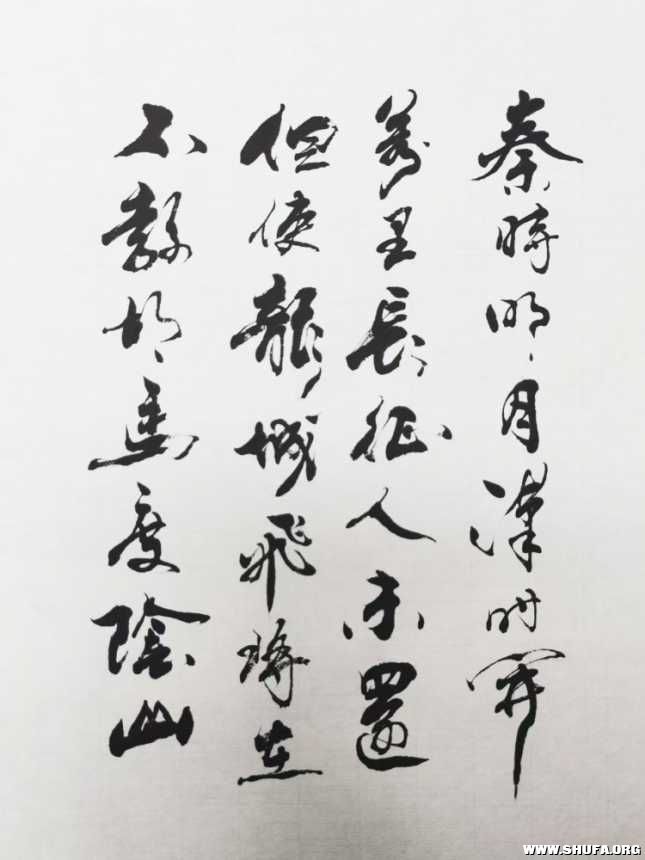 秦時明月漢時關
萬里長征人未還
但使龍城飛將在
不教胡馬度陰山
WWW.SHUFA.ORG